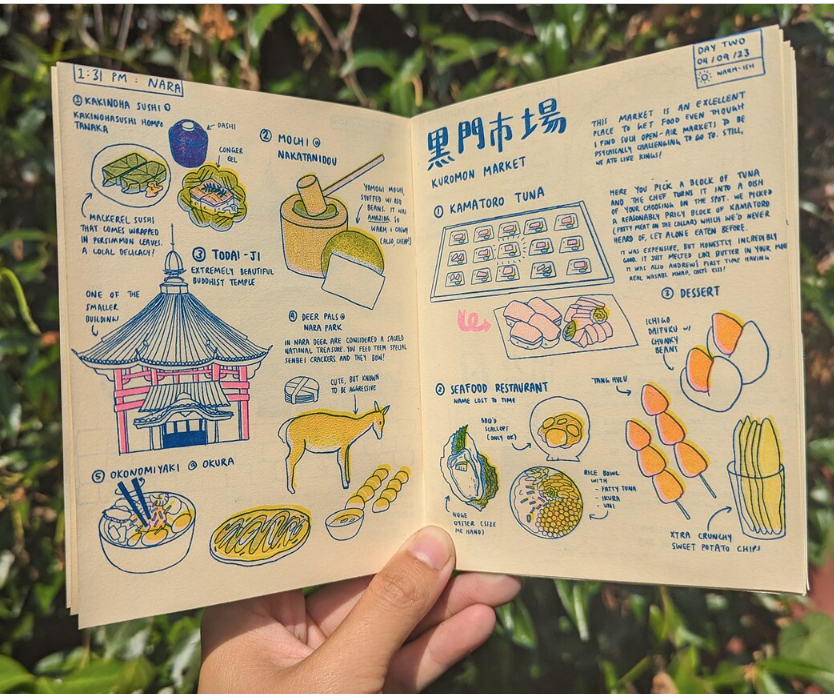 1:31 PM : NARA
① KAKINOHA SUSHI @
KAKINOHASUSHI HOMPO
TANAKA
DASHI
CONGER
EEL
MACKEREL SUSHI
THAT COMES WRAPPED
IN PERSIMMON LEAVES.
A LOCAL DELICACY!
② MOCHI @
NAKATANIDOU
YOMOGI MOCHI
STUFFED W/ RED
BEANS. IT WAS
AMAZING. SO
WARM & CHEWY
(ALSO CHEAP)
③ TODAI-JI
EXTREMELY BEAUTIFUL
BUDDHIST TEMPLE
ONE OF THE
SMALLER
BUILDINGS
④ DEER PALS @
NARA PARK
IN NARA DEER ARE CONSIDERED A SACRED
NATIONAL TREASURE. YOU FEED THEM SPECIAL
SENBEI CRACKERS AND THEY BOW!
CUTE, BUT KNOWN
TO BE AGGRESSIVE
⑤ OKONOMIYAKI @ OKURA
DAY TWO
04/09/23
WARM-ISH
黒門市場
KUROMON MARKET
THIS MARKET IS AN EXCELLENT
PLACE TO GET FOOD EVEN THOUGH
I FIND SUCH OPEN-AIR MARKETS TO BE
PSYCHICALLY CHALLENGING TO GO TO. STILL,
WE ATE LIKE KINGS!
① KAMATORO TUNA
HERE YOU PICK A BLOCK OF TUNA
AND THE CHEF TURNS IT INTO A DISH
OF YOUR CHOOSING ON THE SPOT. WE PICKED
A REASONABLY PRICY BLOCK OF KAMATORO
(FATTY MEAT ON THE COLLAR) WHICH WE'D NEVER
HEARD OF, LET ALONE EATEN BEFORE.
IT WAS EXPENSIVE, BUT HONESTLY INCREDIBLY
GOOD. IT JUST MELTED LIKE BUTTER IN YOUR MOUTH
IT WAS ALSO ANDREW'S FIRST TIME HAVING
REAL WASABI. MWAH, CHEFS KISS!
② SEAFOOD RESTAURANT
NAME LOST TO TIME
BBQ'D
SCALLOPS
(ONLY OK)
HUGE
OYSTER (SIZE
MY HAND)
RICE BOWL
WITH
- FATTY TUNA
- IKURA
- UNI
③ DESSERT
ICHIGO
DAIFUKU W/
CHUNKY
BEANS
TANG HULU
XTRA CRUNCHY
SWEET POTATO CHIPS